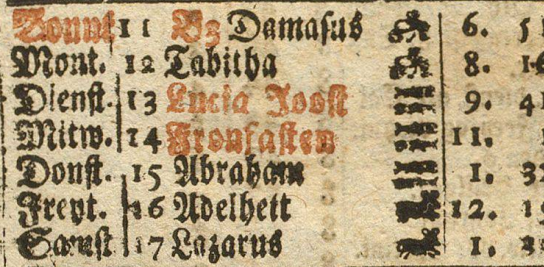 Sonnt 11 B3 Damasus 6. 51
Mont. 12 Tabitha 8. 16
Dienst. 13 Lucia Joost 9. 41
Mitw. 14 Fronfasten 11.
Donst. 15 Abraham 1. 32
Freyt. 16 Adelheit 12. 15
Samst 17 Lazarus 1.